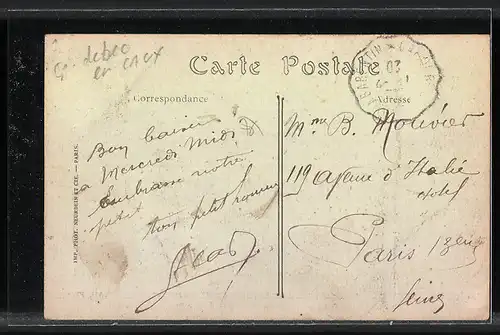 Carte Postale
Correspondance
Adresse
Bon baiser
à Mercredi Midi
Embrasse notre
petit
ton petit homme
Mme B. Molivier
119 Avenue d'Italie
Hotel
Paris 13ème
Seine
IMP. PHOT. NEURDEIN ET CIE. — PARIS.